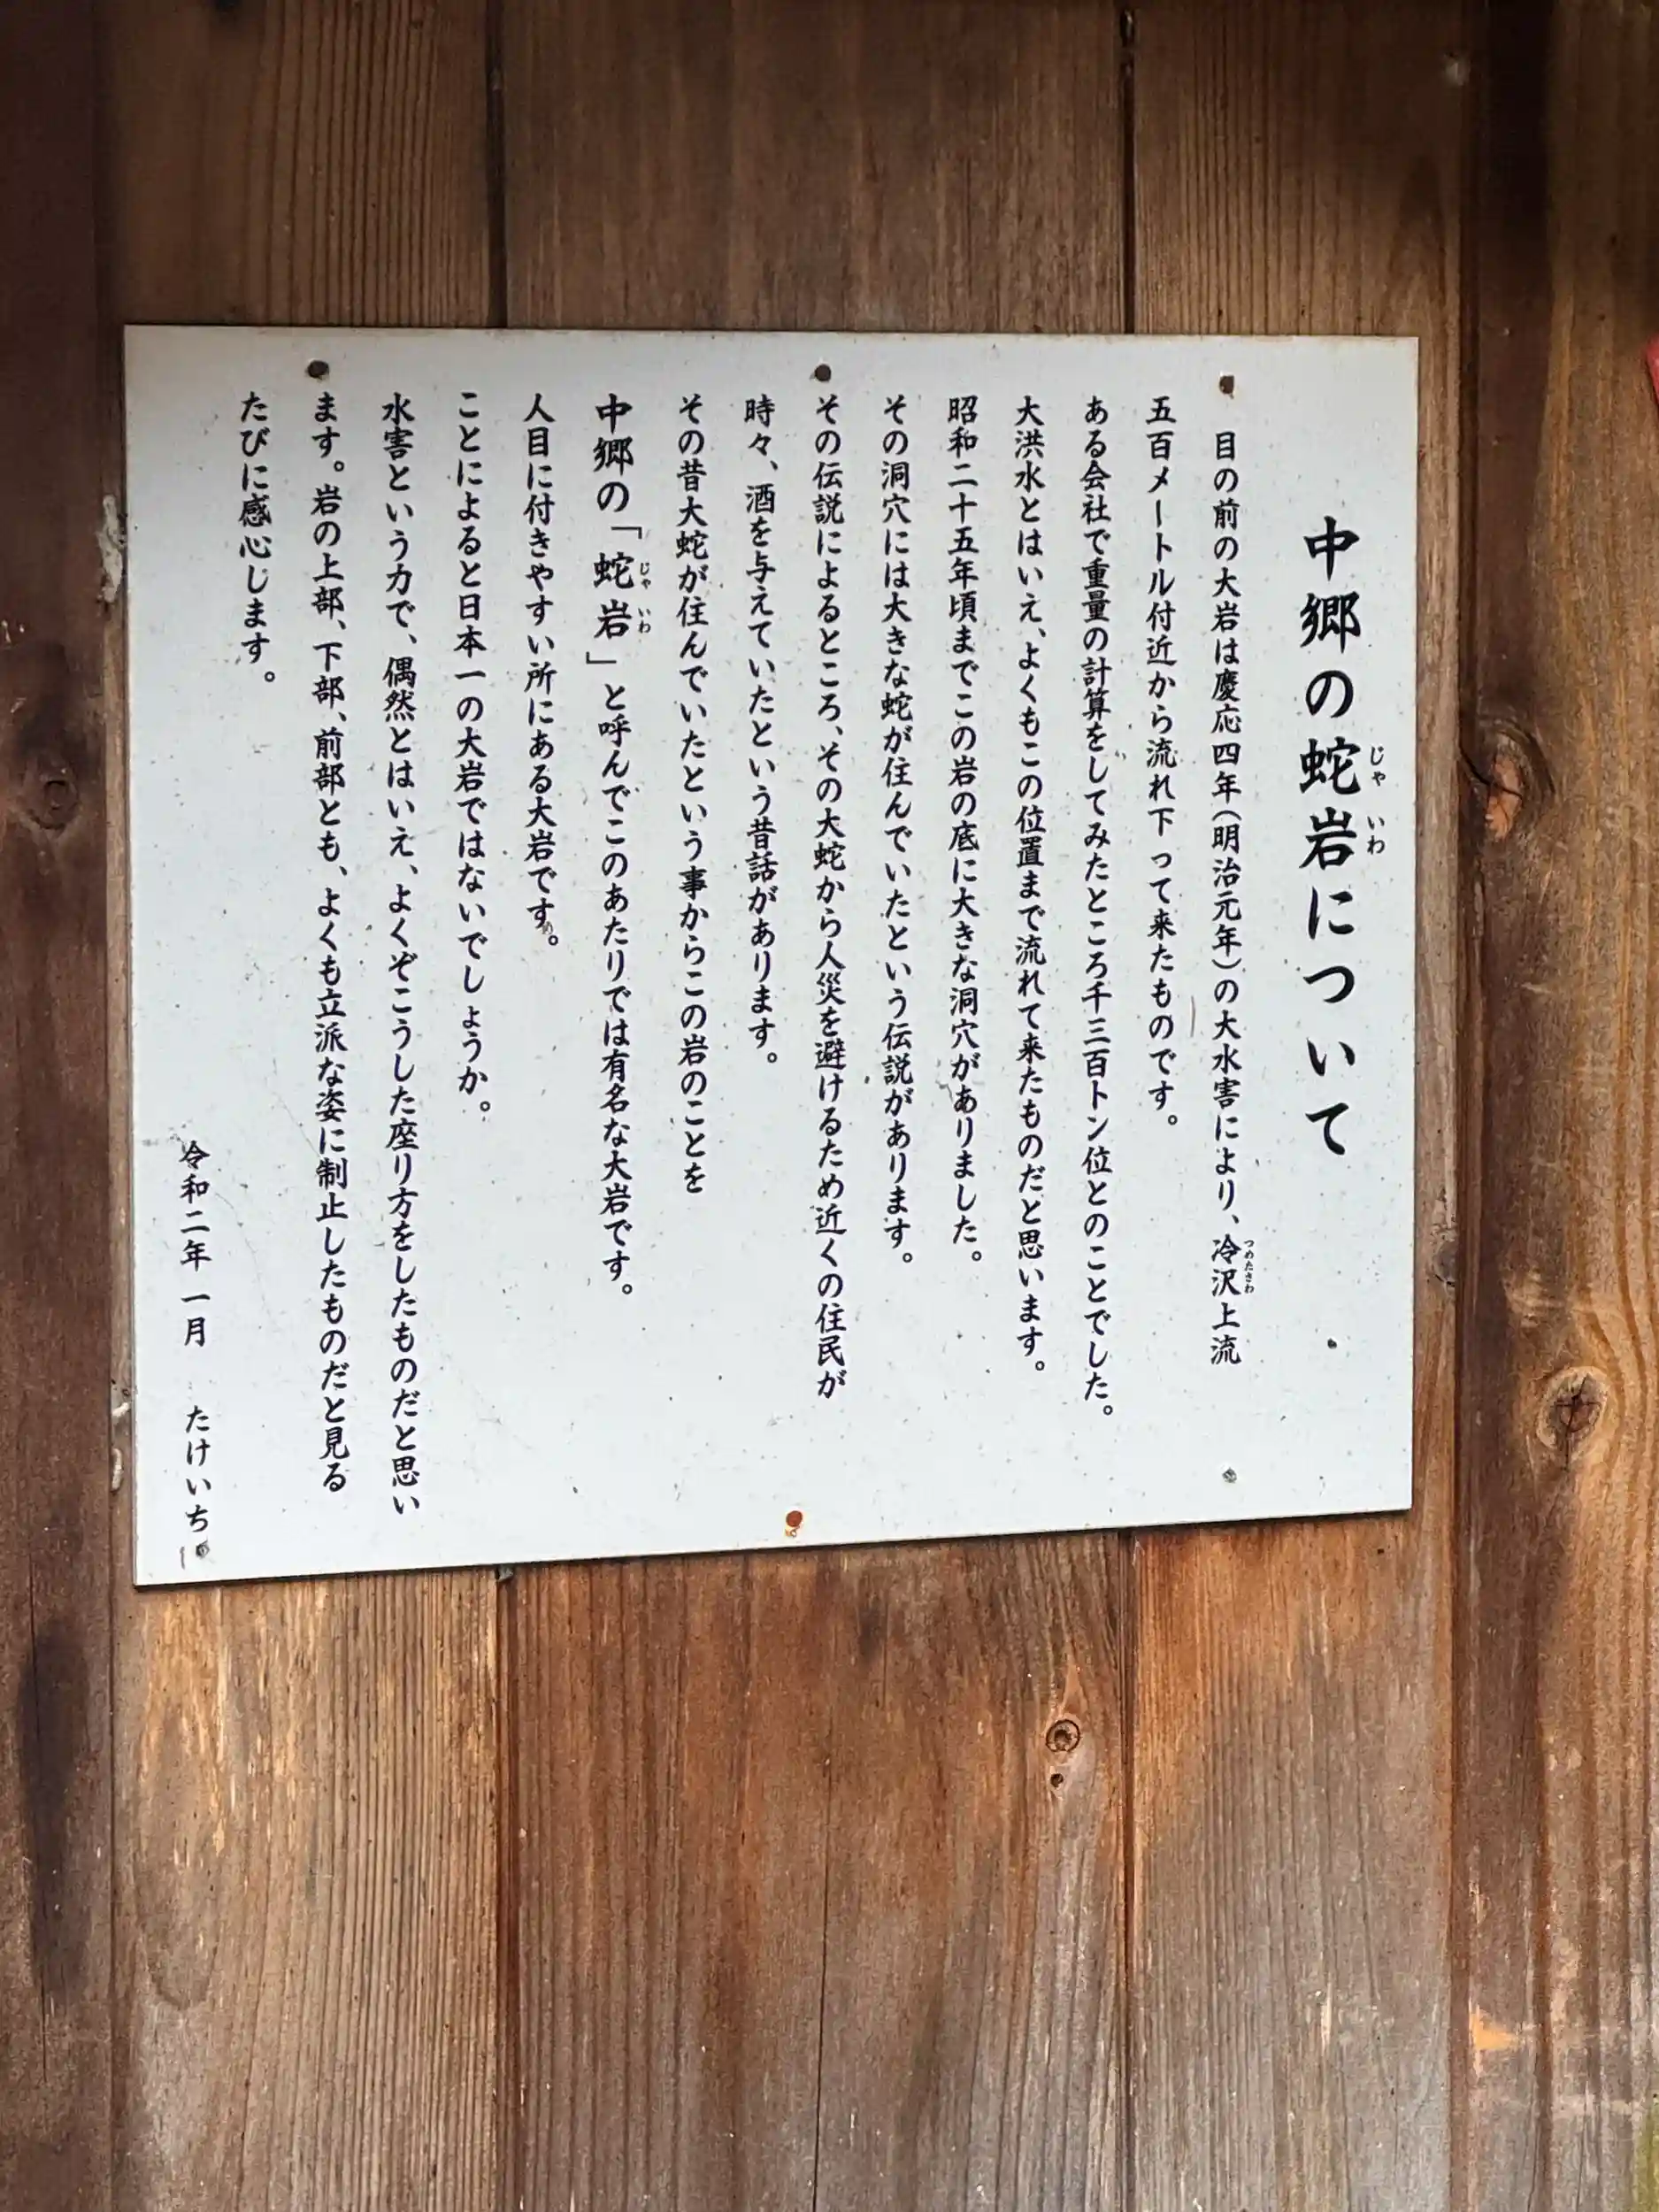 中郷の蛇岩について
じゃいわ
目の前の大岩は慶応四年(明治元年)の大水害により、冷沢上流
つめたさわ
五百メートル付近から流れ下って来たものです。
ある会社で重量の計算をしてみたところ千三百トン位とのことでした。
大洪水とはいえ、よくもこの位置まで流れて来たものだと思います。
昭和二十五年頃までこの岩の底に大きな洞穴がありました。
その洞穴には大きな蛇が住んでいたという伝説があります。
その伝説によるところ、その大蛇から人災を避けるため近くの住民が
時々、酒を与えていたという昔話があります。
その昔大蛇が住んでいたという事からこの岩のことを
中郷の「蛇岩」と呼んでこのあたりでは有名な大岩です。
じゃいわ
人目に付きやすい所にある大岩です。
ことによると日本一の大岩ではないでしょうか。
水害という力で、偶然とはいえ、よくぞこうした座り方をしたものだと思い
ます。岩の上部、下部、前部とも、よくも立派な姿に制止したものだと見る
たびに感心します。
令和二年一月 たけいち